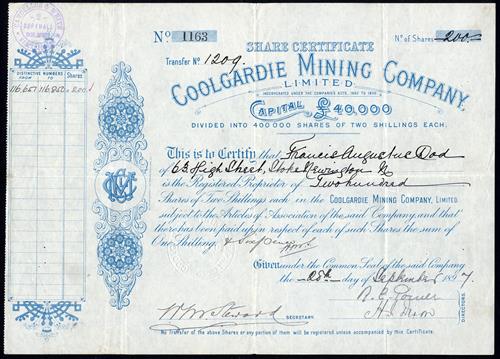 Nº 1163
Nº of Shares 200
SHARE CERTIFICATE
Transfer Nº 1209.
COOLGARDIE MINING COMPANY,
LIMITED.
INCORPORATED UNDER THE COMPANIES ACTS, 1862 TO 1890
CAPITAL £40,000
DIVIDED INTO 400000 SHARES OF TWO SHILLINGS EACH.
DISTINCTIVE NUMBERS
FROM TO
SHARES
116,651 116,850 200
This is to Certify that Francis Augustus Dod
of 63 High Street, Stoke Newington N
is the Registered Proprietor of Two hundred
Shares of Two Shillings each in the COOLGARDIE MINING COMPANY, LIMITED
subject to the Articles of Association of the said Company, and that
there has been paid up in respect of each of such Shares the sum of
One Shilling,
Given under the Common Seal of the said Company
the 28th day of September 1897.
SECRETARY.
DIRECTORS.
No Transfer of the above Shares or any portion of them will be registered unless accompanied by this Certificate.